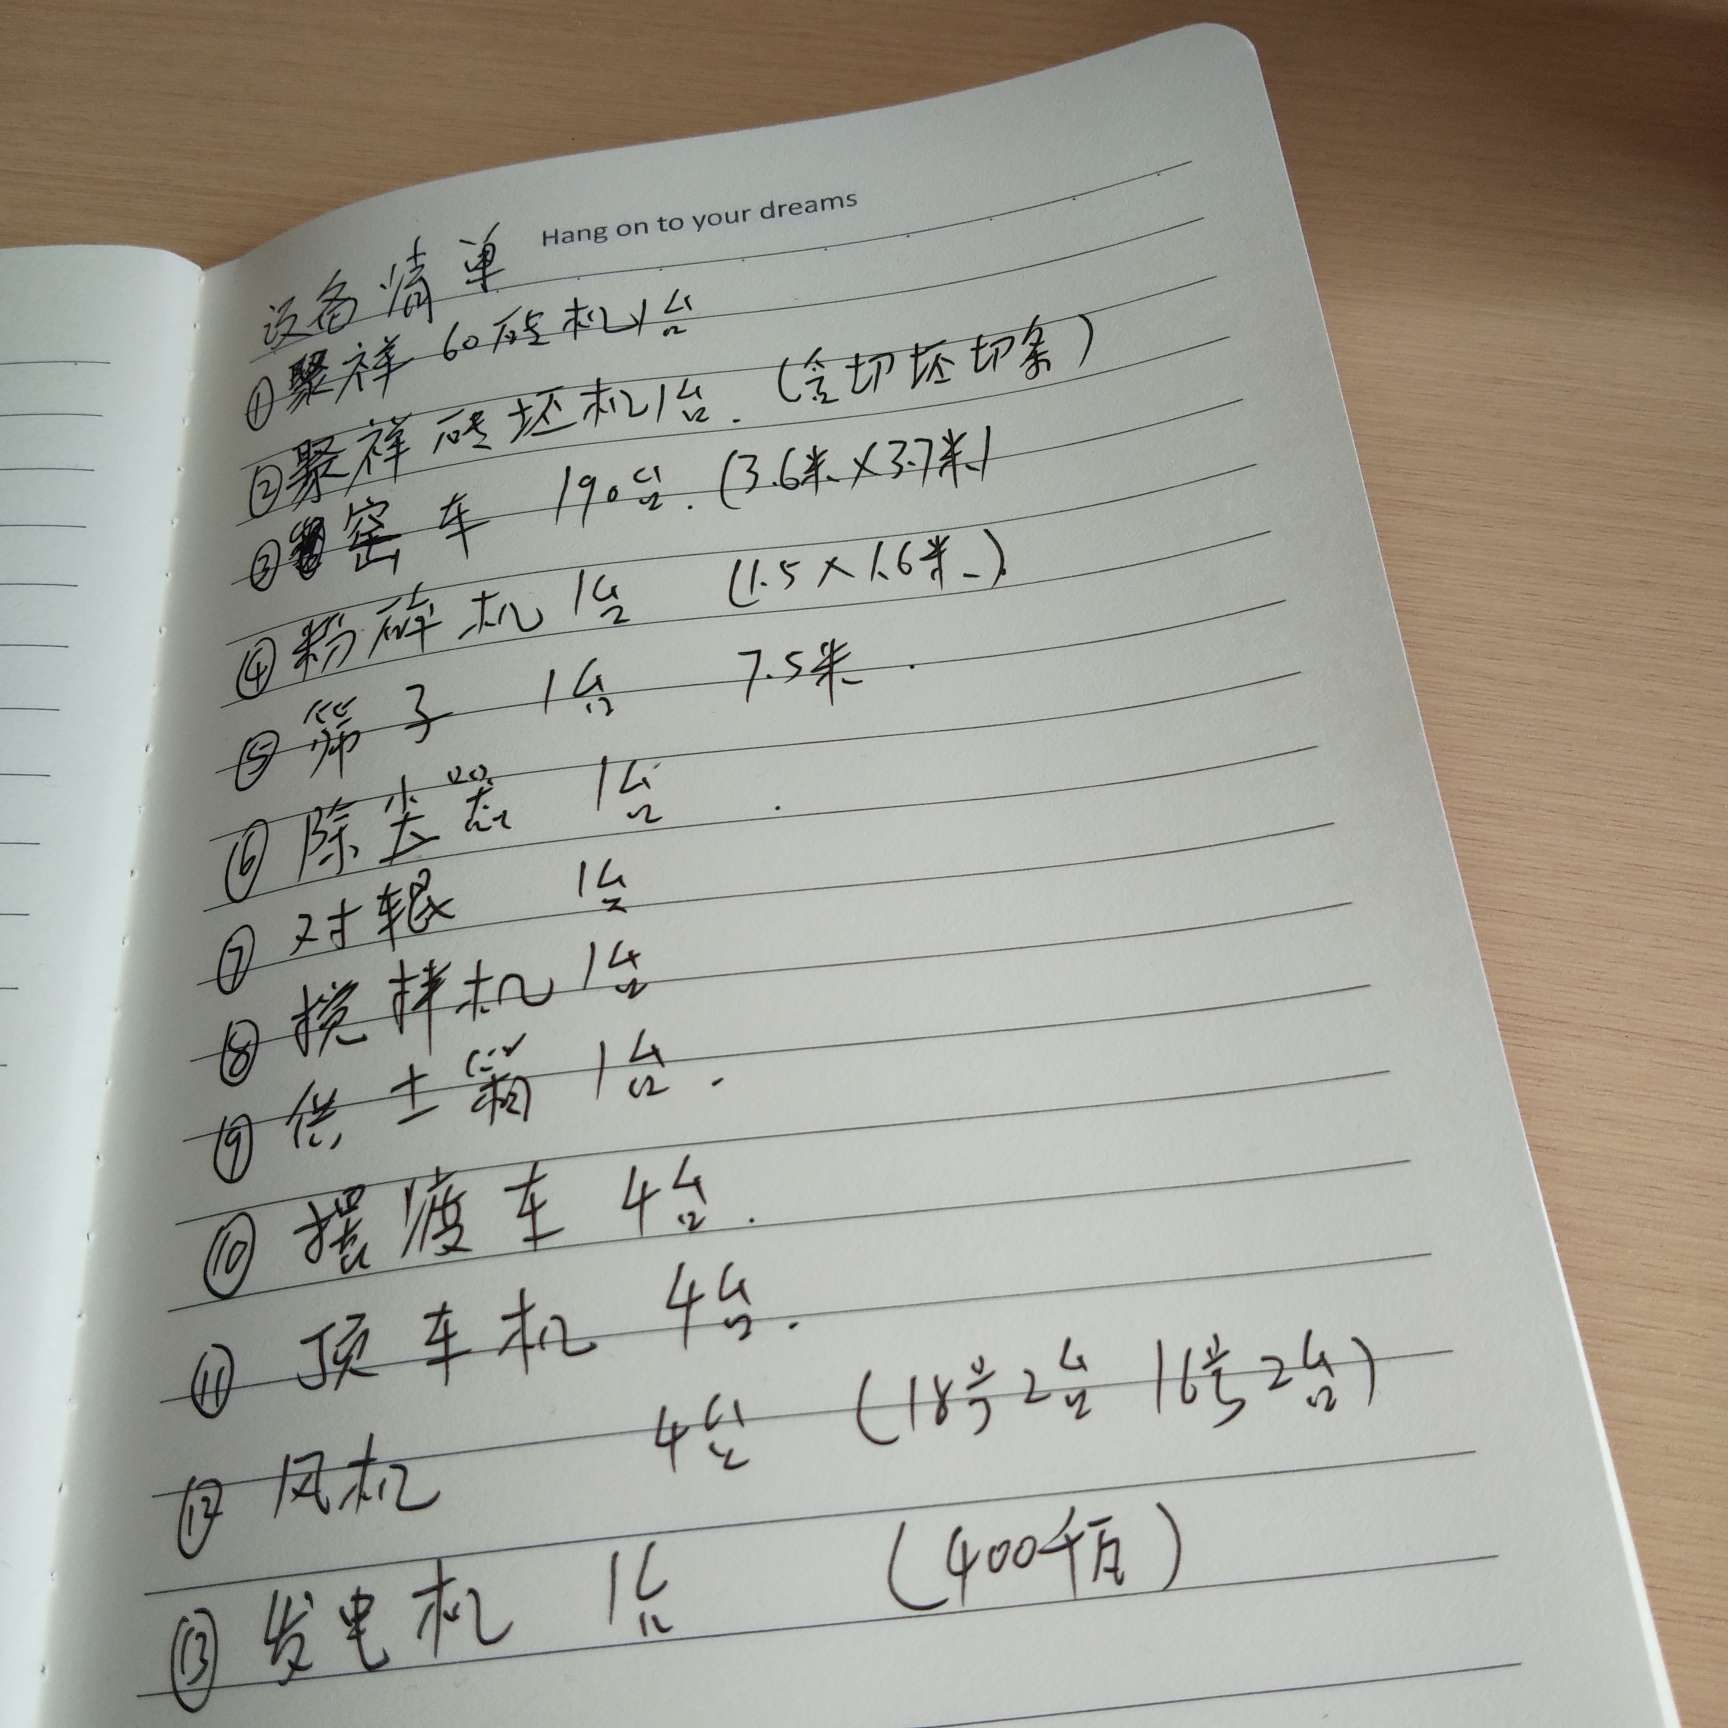 Hang on to your dreams
设备清单
①聚祥60砖机1台
②聚祥砖坯机1台.(含切坯切条)
③窑车 190台.(3.6米×3.7米)
④粉碎机1台 (1.5×1.6米).
⑤筛子 1台 7.5米.
⑥除尘器 1台.
⑦对辊 1台
⑧搅拌机1台
⑨供土箱1台.
⑩摆渡车4台.
⑪顶车机 4台.
⑫风机 4台 (18号2台 16号2台)
⑬发电机 1台 (400千瓦)